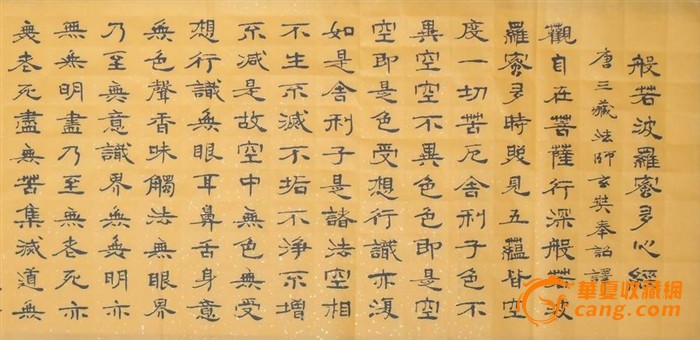 般若波羅蜜多心經
唐三藏法師玄奘奉詔譯
觀自在菩薩行深般若波
羅蜜多時照見五蘊皆空
度一切苦厄舍利子色不
異空空不異色色即是空
空即是色受想行識亦復
如是舍利子是諸法空相
不生不滅不垢不淨不增
不減是故空中無色無受
想行識無眼耳鼻舌身意
無色聲香味觸法無眼界
乃至無意識界無無明亦
無無明盡乃至無老死亦
無老死盡無苦集滅道無
华夏收藏网
cang.com